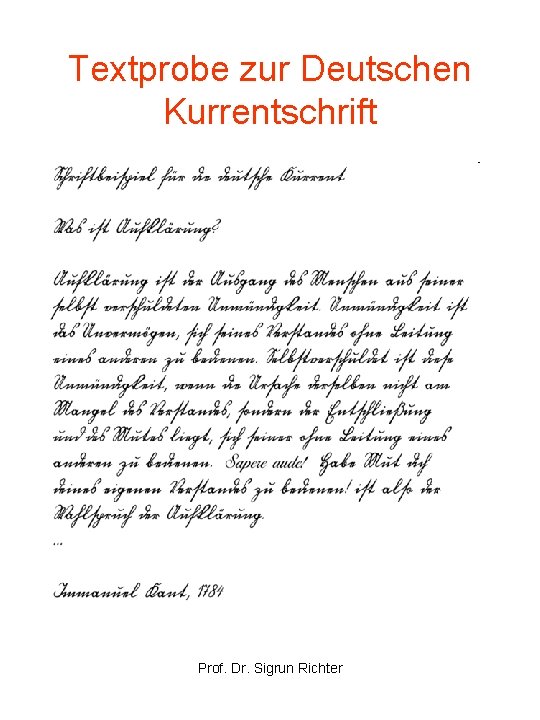 Textprobe zur Deutschen
Kurrentschrift
Schriftbeispiel für die deutsche Kurrent
Was ist Aufklärung?
Aufklärung ist der Ausgang des Menschen aus seiner
selbst verschuldeten Unmündigkeit. Unmündigkeit ist
das Unvermögen, sich seines Verstandes ohne Leitung
eines anderen zu bedienen. Selbstverschuldet ist diese
Unmündigkeit, wenn die Ursache derselben nicht am
Mangel des Verstandes, sondern der Entschließung
und des Mutes liegt, sich seiner ohne Leitung eines
anderen zu bedienen. Sapere aude! Habe Mut dich
deines eigenen Verstandes zu bedienen! ist also der
Wahlspruch der Aufklärung.
...
Immanuel Kant, 1784
Prof. Dr. Sigrun Richter